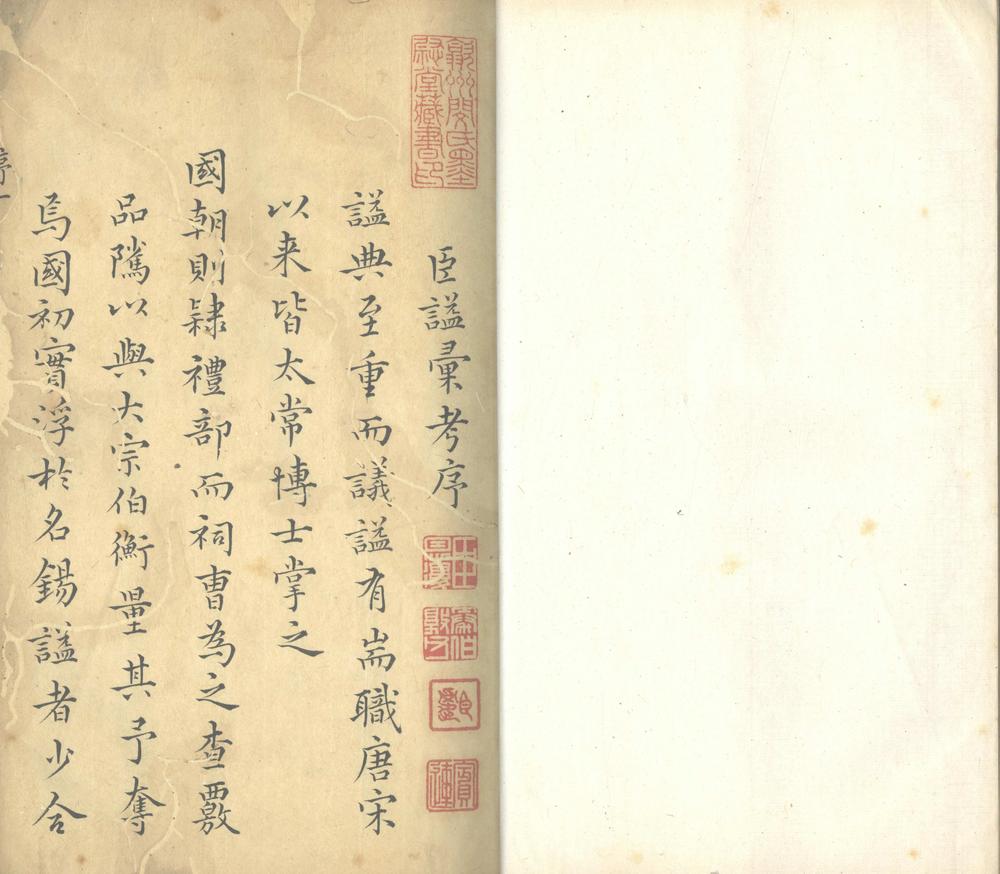 臣謚彙考序
謚典至重而議謚有耑職唐宋
以来皆太常博士掌之
國朝則隷禮部而祠曺為之查覈
品隲以與大宗伯衡量其予奪
焉國初實浮於名錫謚者少合
序一